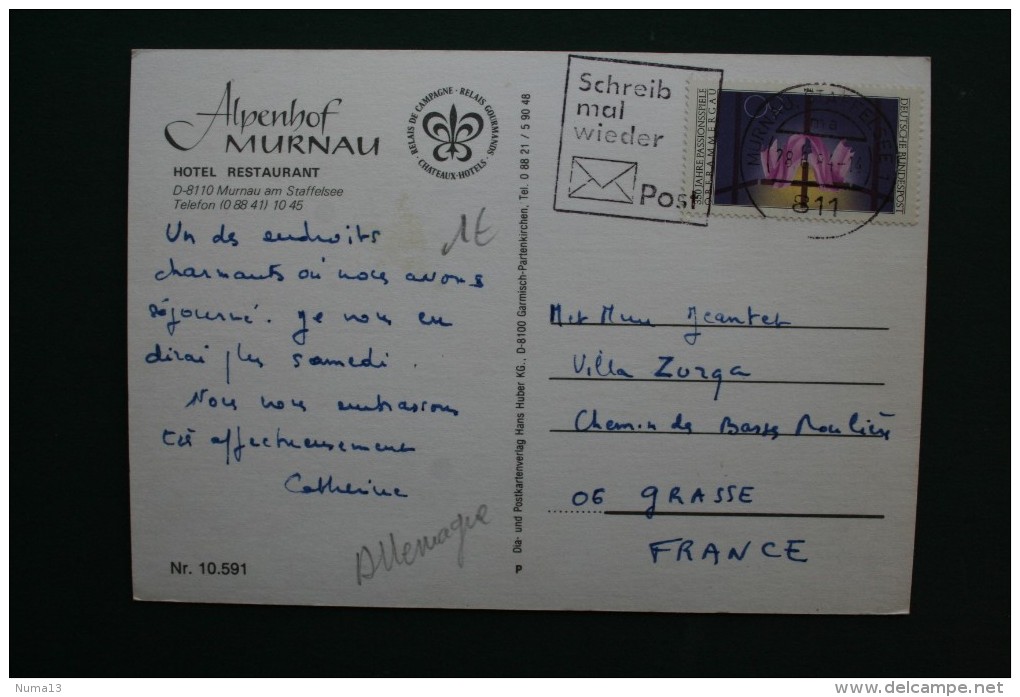 Alpenhof
MURNAU
HOTEL RESTAURANT
D-8110 Murnau am Staffelsee
Telefon (0 88 41) 10 45
RELAIS DE CAMPAGNE · RELAIS GOURMANDS · CHATEAUX-HOTELS ·
1E
Un des endroits
charmants où nous avons
séjourné. Je vous en
dirai plus samedi.
Nous vous embrassons
très affectueusement
Catherine
Allemagne
Nr. 10.591
Dia- und Postkartenverlag Hans Huber KG., D-8100 Garmisch-Partenkirchen, Tel. 0 88 21 / 5 90 48
P
Schreib
mal
wieder
Post
350 JAHRE PASSIONSSPIELE
OBERAMMERGAU
DEUTSCHE BUNDESPOST
MURNAU A STAFFELSEE 1
811
M et Mme Jeantet
Villa Zorga
Chemin des Basses Moulières
06 GRASSE
FRANCE
Numa13
delcampe.net